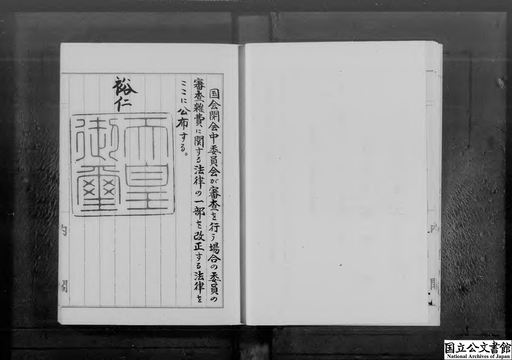 国会開会中委員会が審査を行う場合の委員の
審査雑費に関する法律の一部を改正する法律を
ここに公布する。
裕仁
天皇
御璽
内
閣
内
閣
国立公文書館
National Archives of Japan